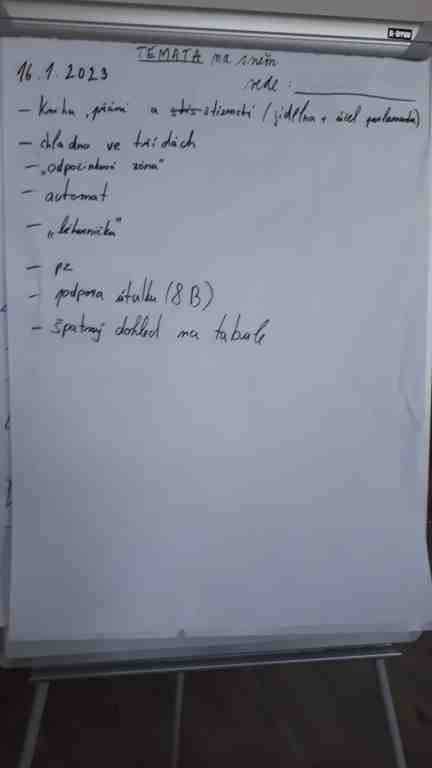 TEMATA na sněm
16.1.2023
vede:
- Kniha „přání a stížností (jídelna + účel parlamentu)
- chladno ve třídách
- „odpočinková zóna"
- automat
- „lékárnička"
- pz
- podpora útulku (8B)
- špatný dohled na tabule